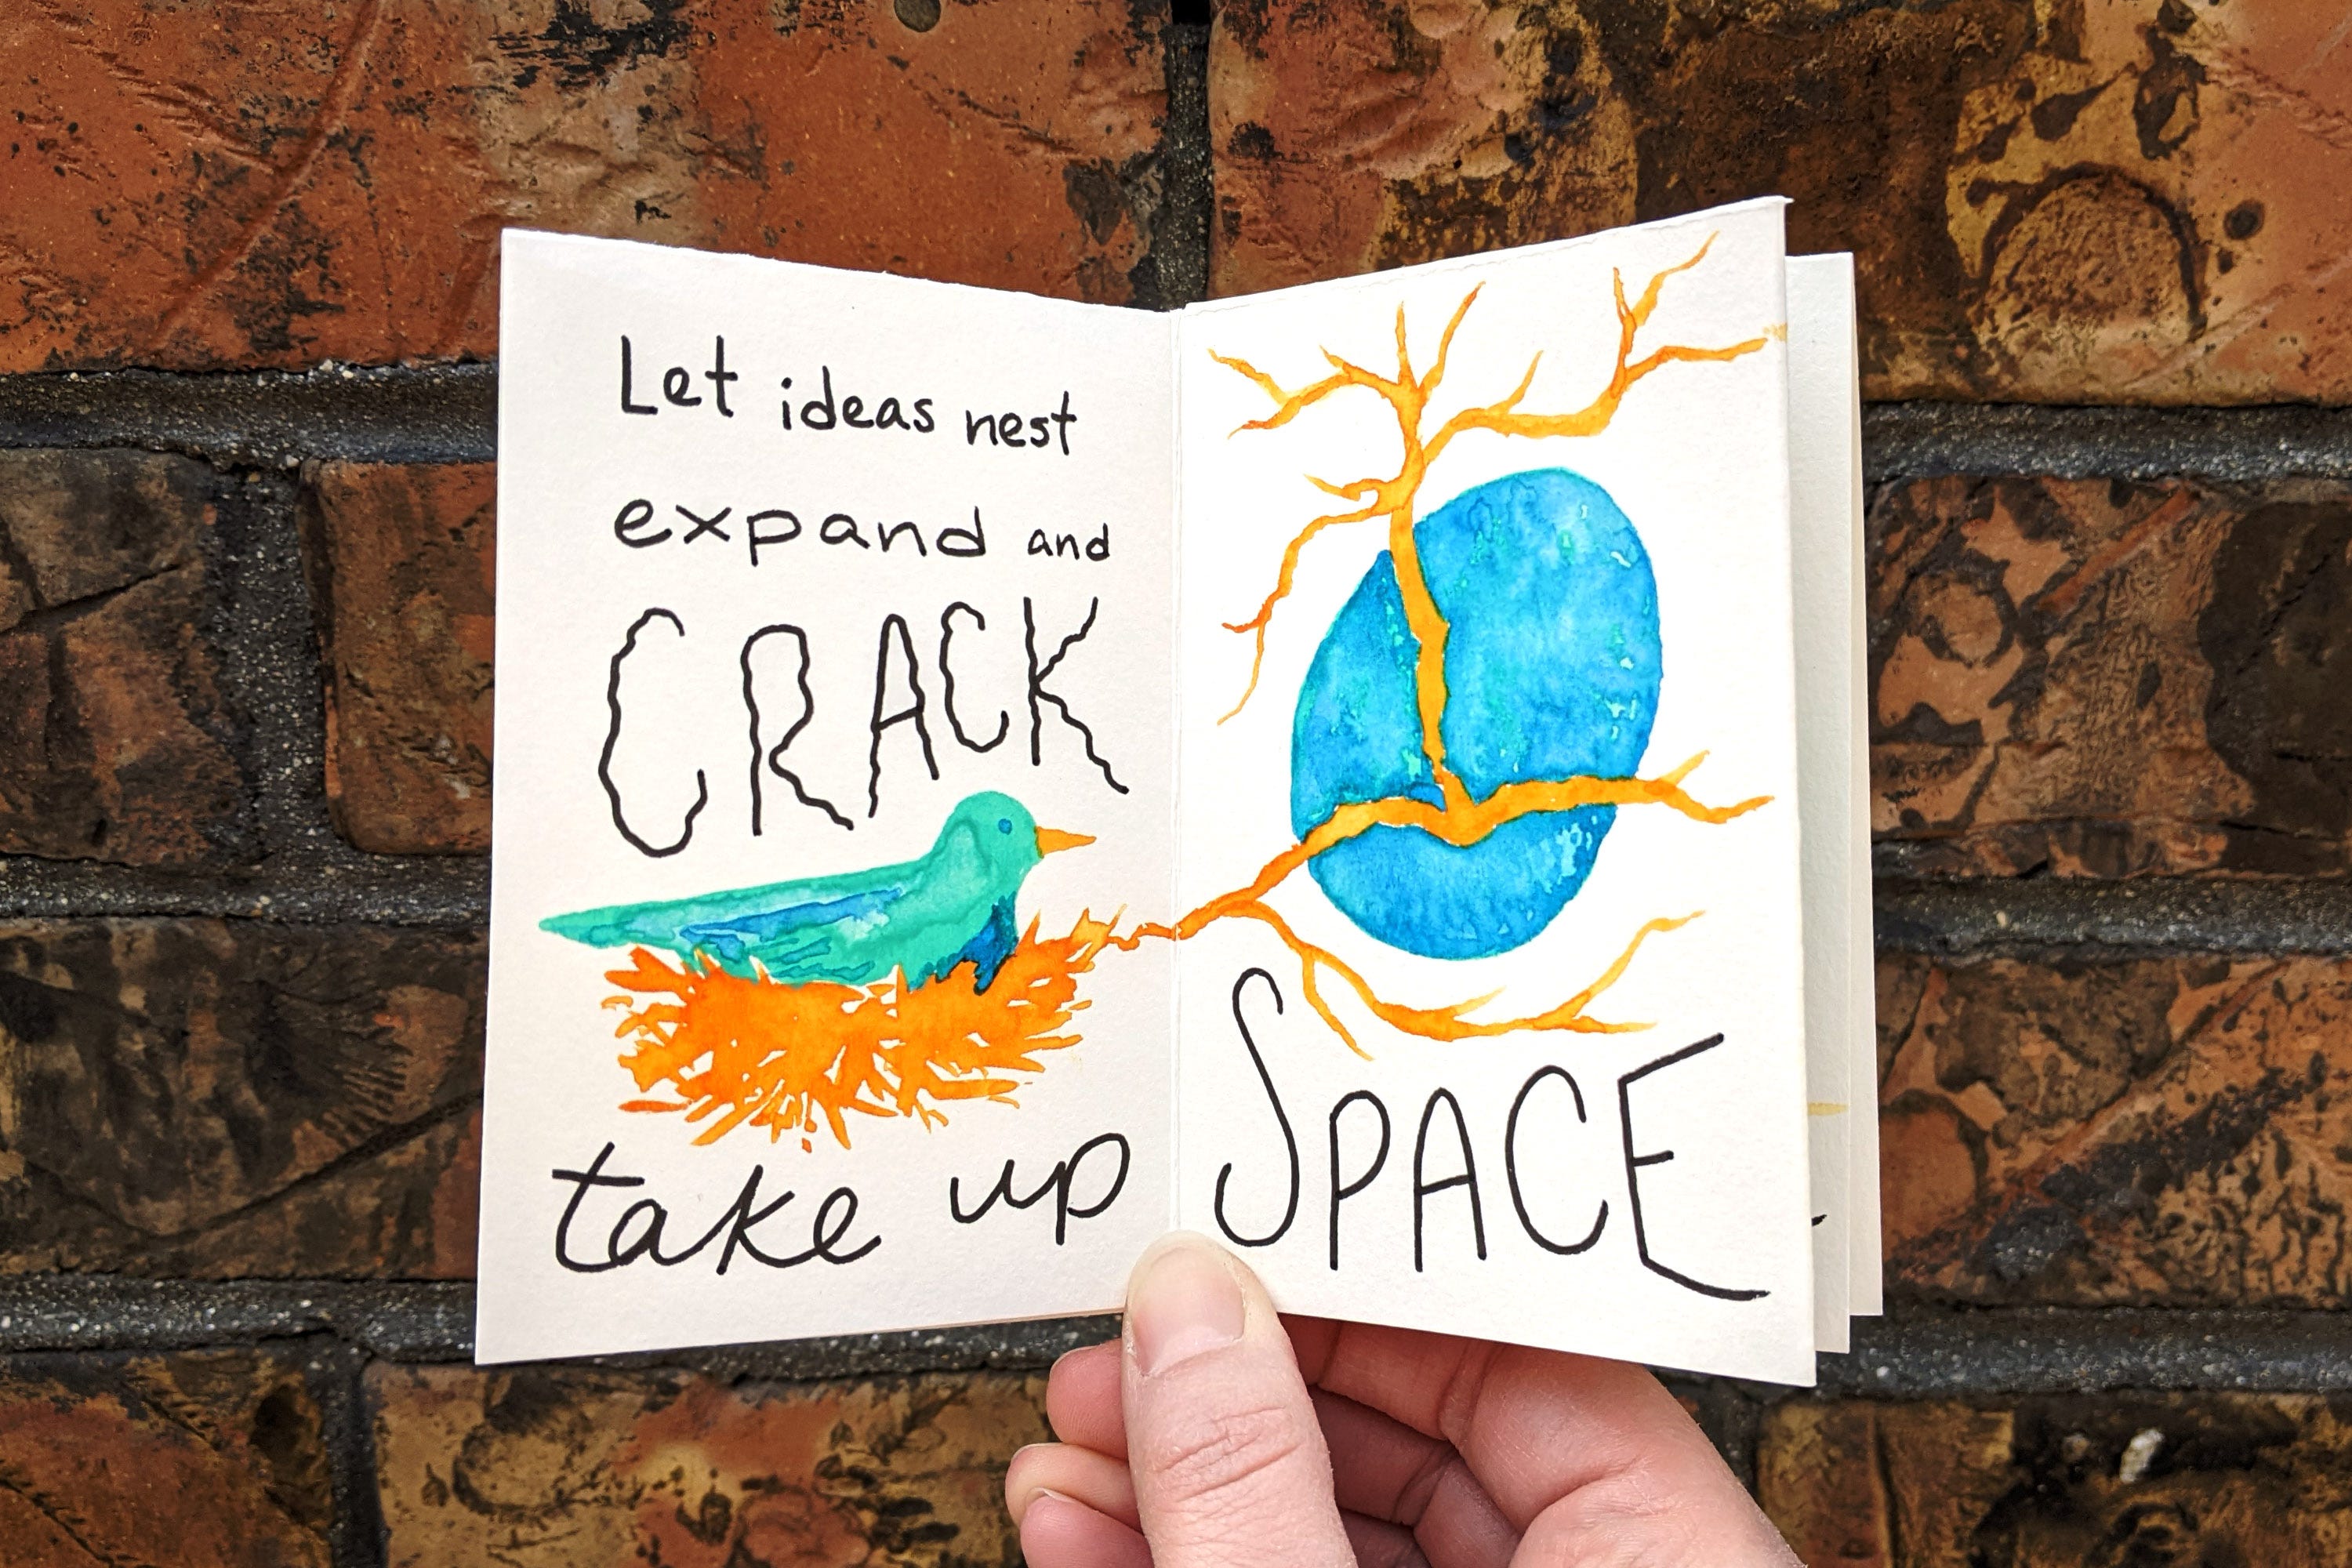 Let ideas nest
expand and
CRACK
take up SPACE